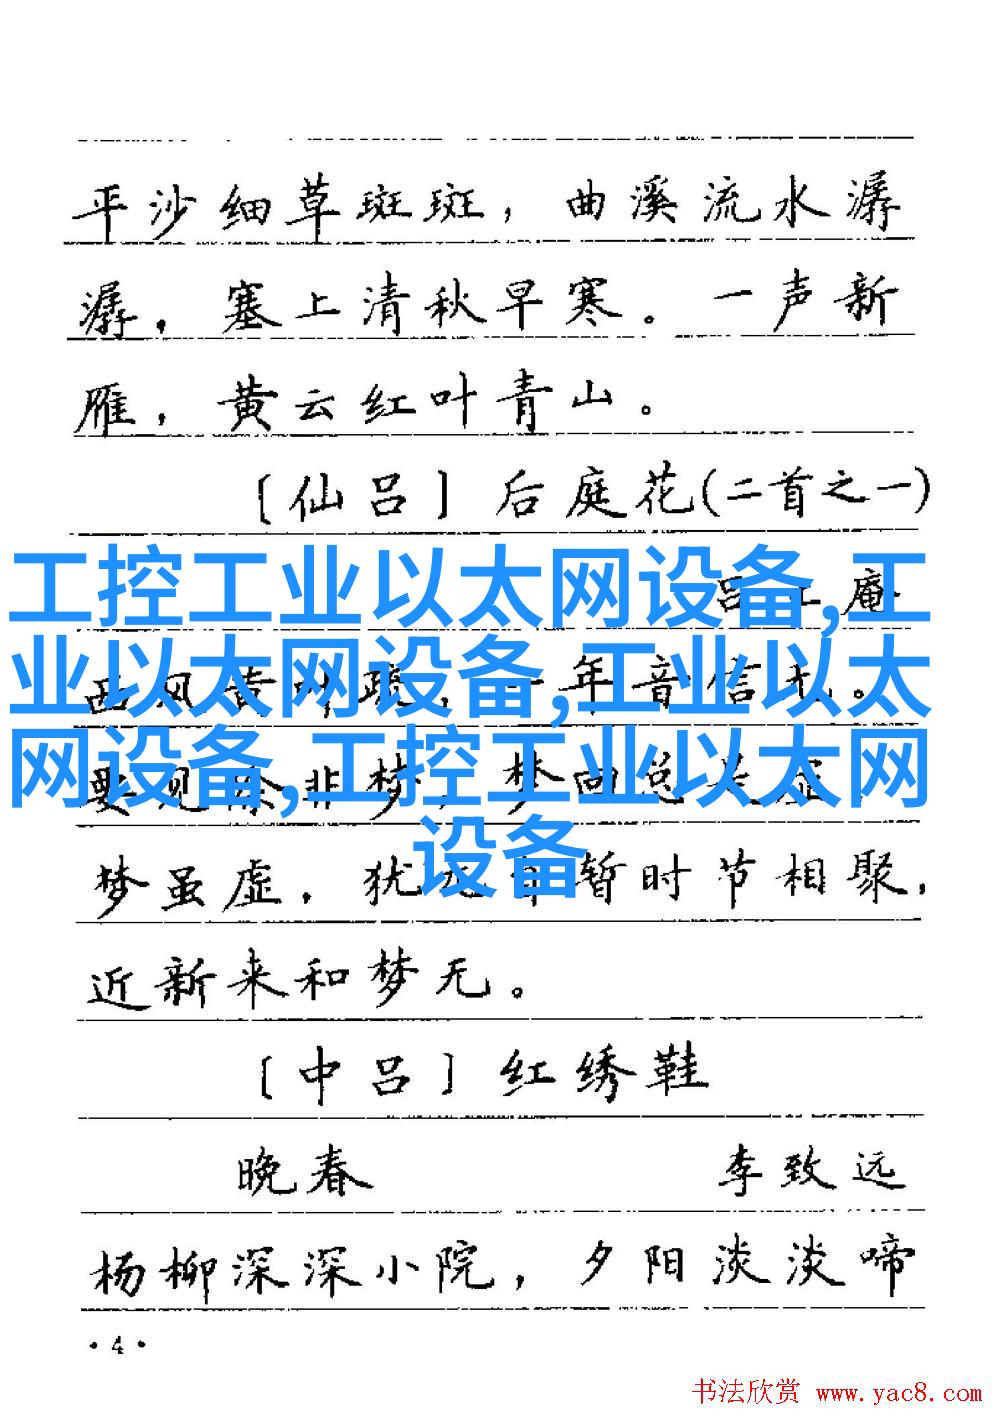 平沙细草斑斑，曲溪流水潺
潺，塞上清秋早寒。一声新
雁，黄云红叶青山。
〔仙吕〕后庭花(二首之一)
工控工业以太网设备,工
业以太网设备,工业以太
网设备,工控工业以太网
设备
吕 庵
年音信无。
要 非梦，梦
梦虽虚，犹 暂时节相聚，
近新来和梦无。
〔中吕〕红绣鞋
晚春 李致远
杨柳深深小院，夕阳淡淡啼
·4·
书法欣赏 www.yac8.com